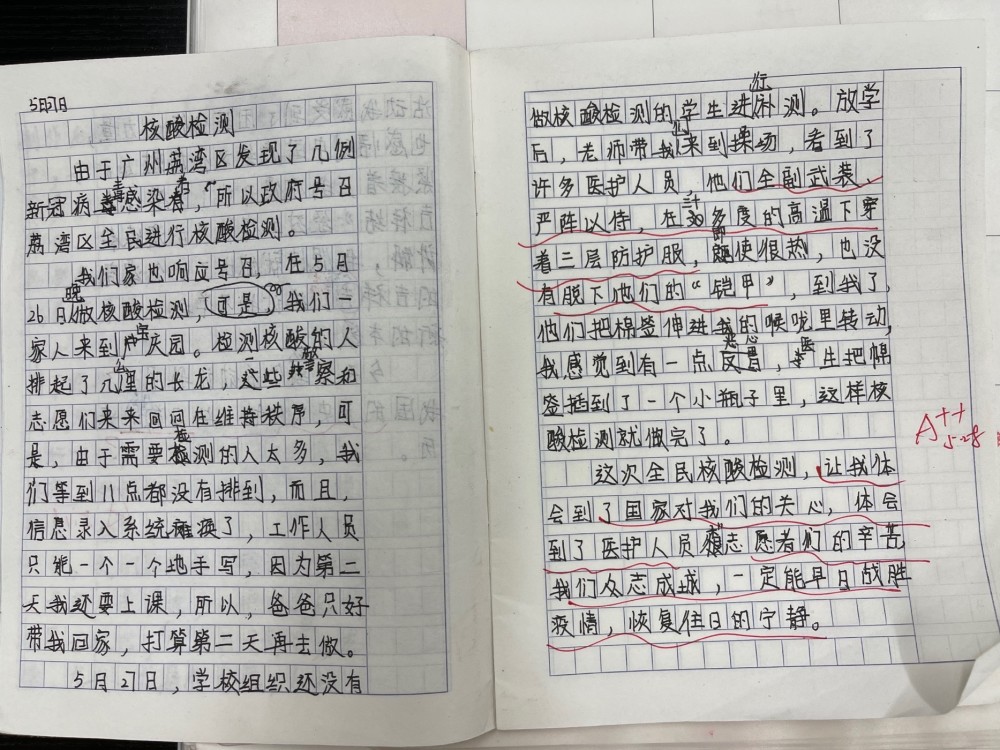 5月27日
核酸检测
由于广州荔湾区发现了几例
新冠病毒感染者，所以政府号召
荔湾区全民进行核酸检测。
我们家也响应号召，在5月
26日晚做核酸检测，可是，我们一
家人来到广宇庆园。检测核酸的人
排起了几里的长龙，这些警察和
志愿们来来回回在维持秩序，可
是，由于需要检测的人太多，我
们等到11点都没有排到，而且，
信息录入系统瘫痪了，工作人员
只能一个一个地手写，因为第二
天我还要上课，所以，爸爸只好
带我回家，打算第二天再去做。
5月27日，学校组织还没有
做核酸检测的学生进行补测。放学
后，老师带我们来到操场，看到了
许多医护人员，他们全副武装、
严阵以侍，在三十多度的高温下穿
着三层防护服，即使很热，也没
有脱下他们的“铠甲”，到我了，
他们把棉签伸进我的喉咙里转动，
我感觉到有一点恶心，医生把棉
签插到了一个小瓶子里，这样核
酸检测就做完了。
这次全民核酸检测，让我体
会到了国家对我们的关心，体会
到了医护人员和志愿者们的辛苦
我们众志成城，一定能早日战胜
疫情，恢复往日的宁静。
A++
5.28